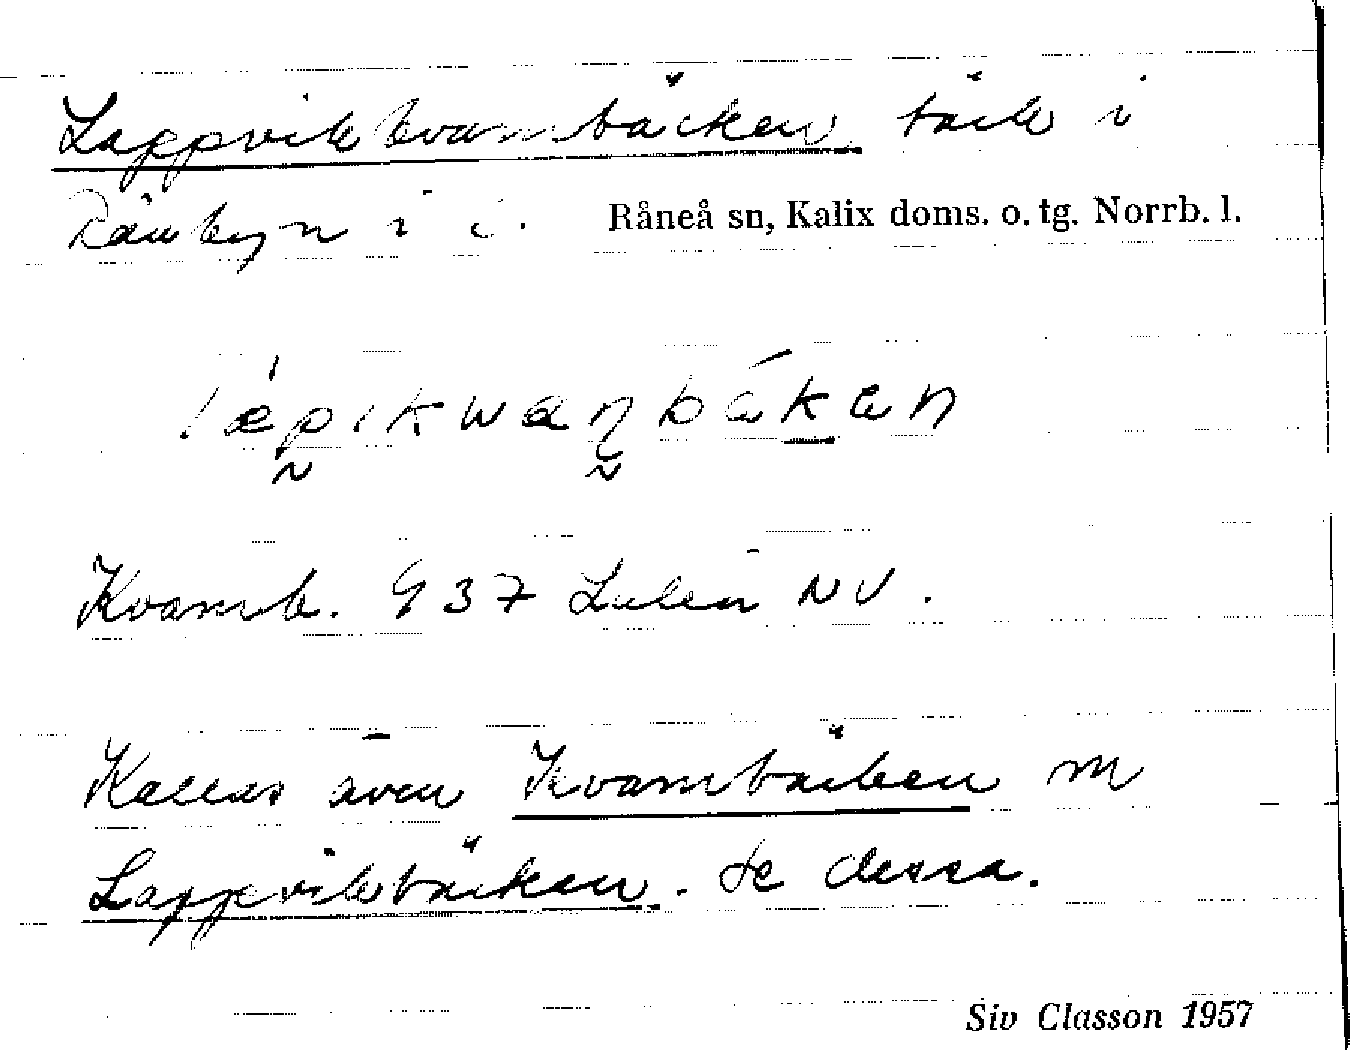 Lappvikkvarnbäcken bäck i
Rånbyn i i. Råneå sn, Kalix doms. o. tg. Norrb. l.
Kvarnb. 937 Luleå NV.
Kallas även Kvarnbäcken m
Lappviksbäcken. Se dessa.
Siv Classon 1957